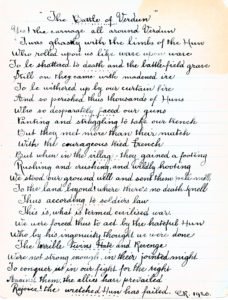 "The Battle of Verdun"
the carnage all around Verdun
'Twas ghastly with the limbs of the Hun
Who rolled upon us like wave upon wave
To be shattered to death and the battlefield grave
Still on they came with maddened ire
To be withered up by our curtain fire
And so perished this thousands of Huns
Who so desperately faced our guns
Panting and struggling to take our trench
But they met more than their match
With the courageous tried French
But when on the valley they gained a footing
Rushing and crushing and wildly hooting
We stood our ground well and sent them
To the land beyond where there's no death knell
Thus according to soldiers law
This is, what is termed civilised war.
We are forced thus to act by the hateful Hun
Who by his ingenuity thought we were done
The terrible Hate and Revenge
Were not strong enough, in their jointed might
To conquer us in our fight for the right
Against them, the allies have prevailed
Rejoice! the wretched Hun has failed. C.R. 1920.